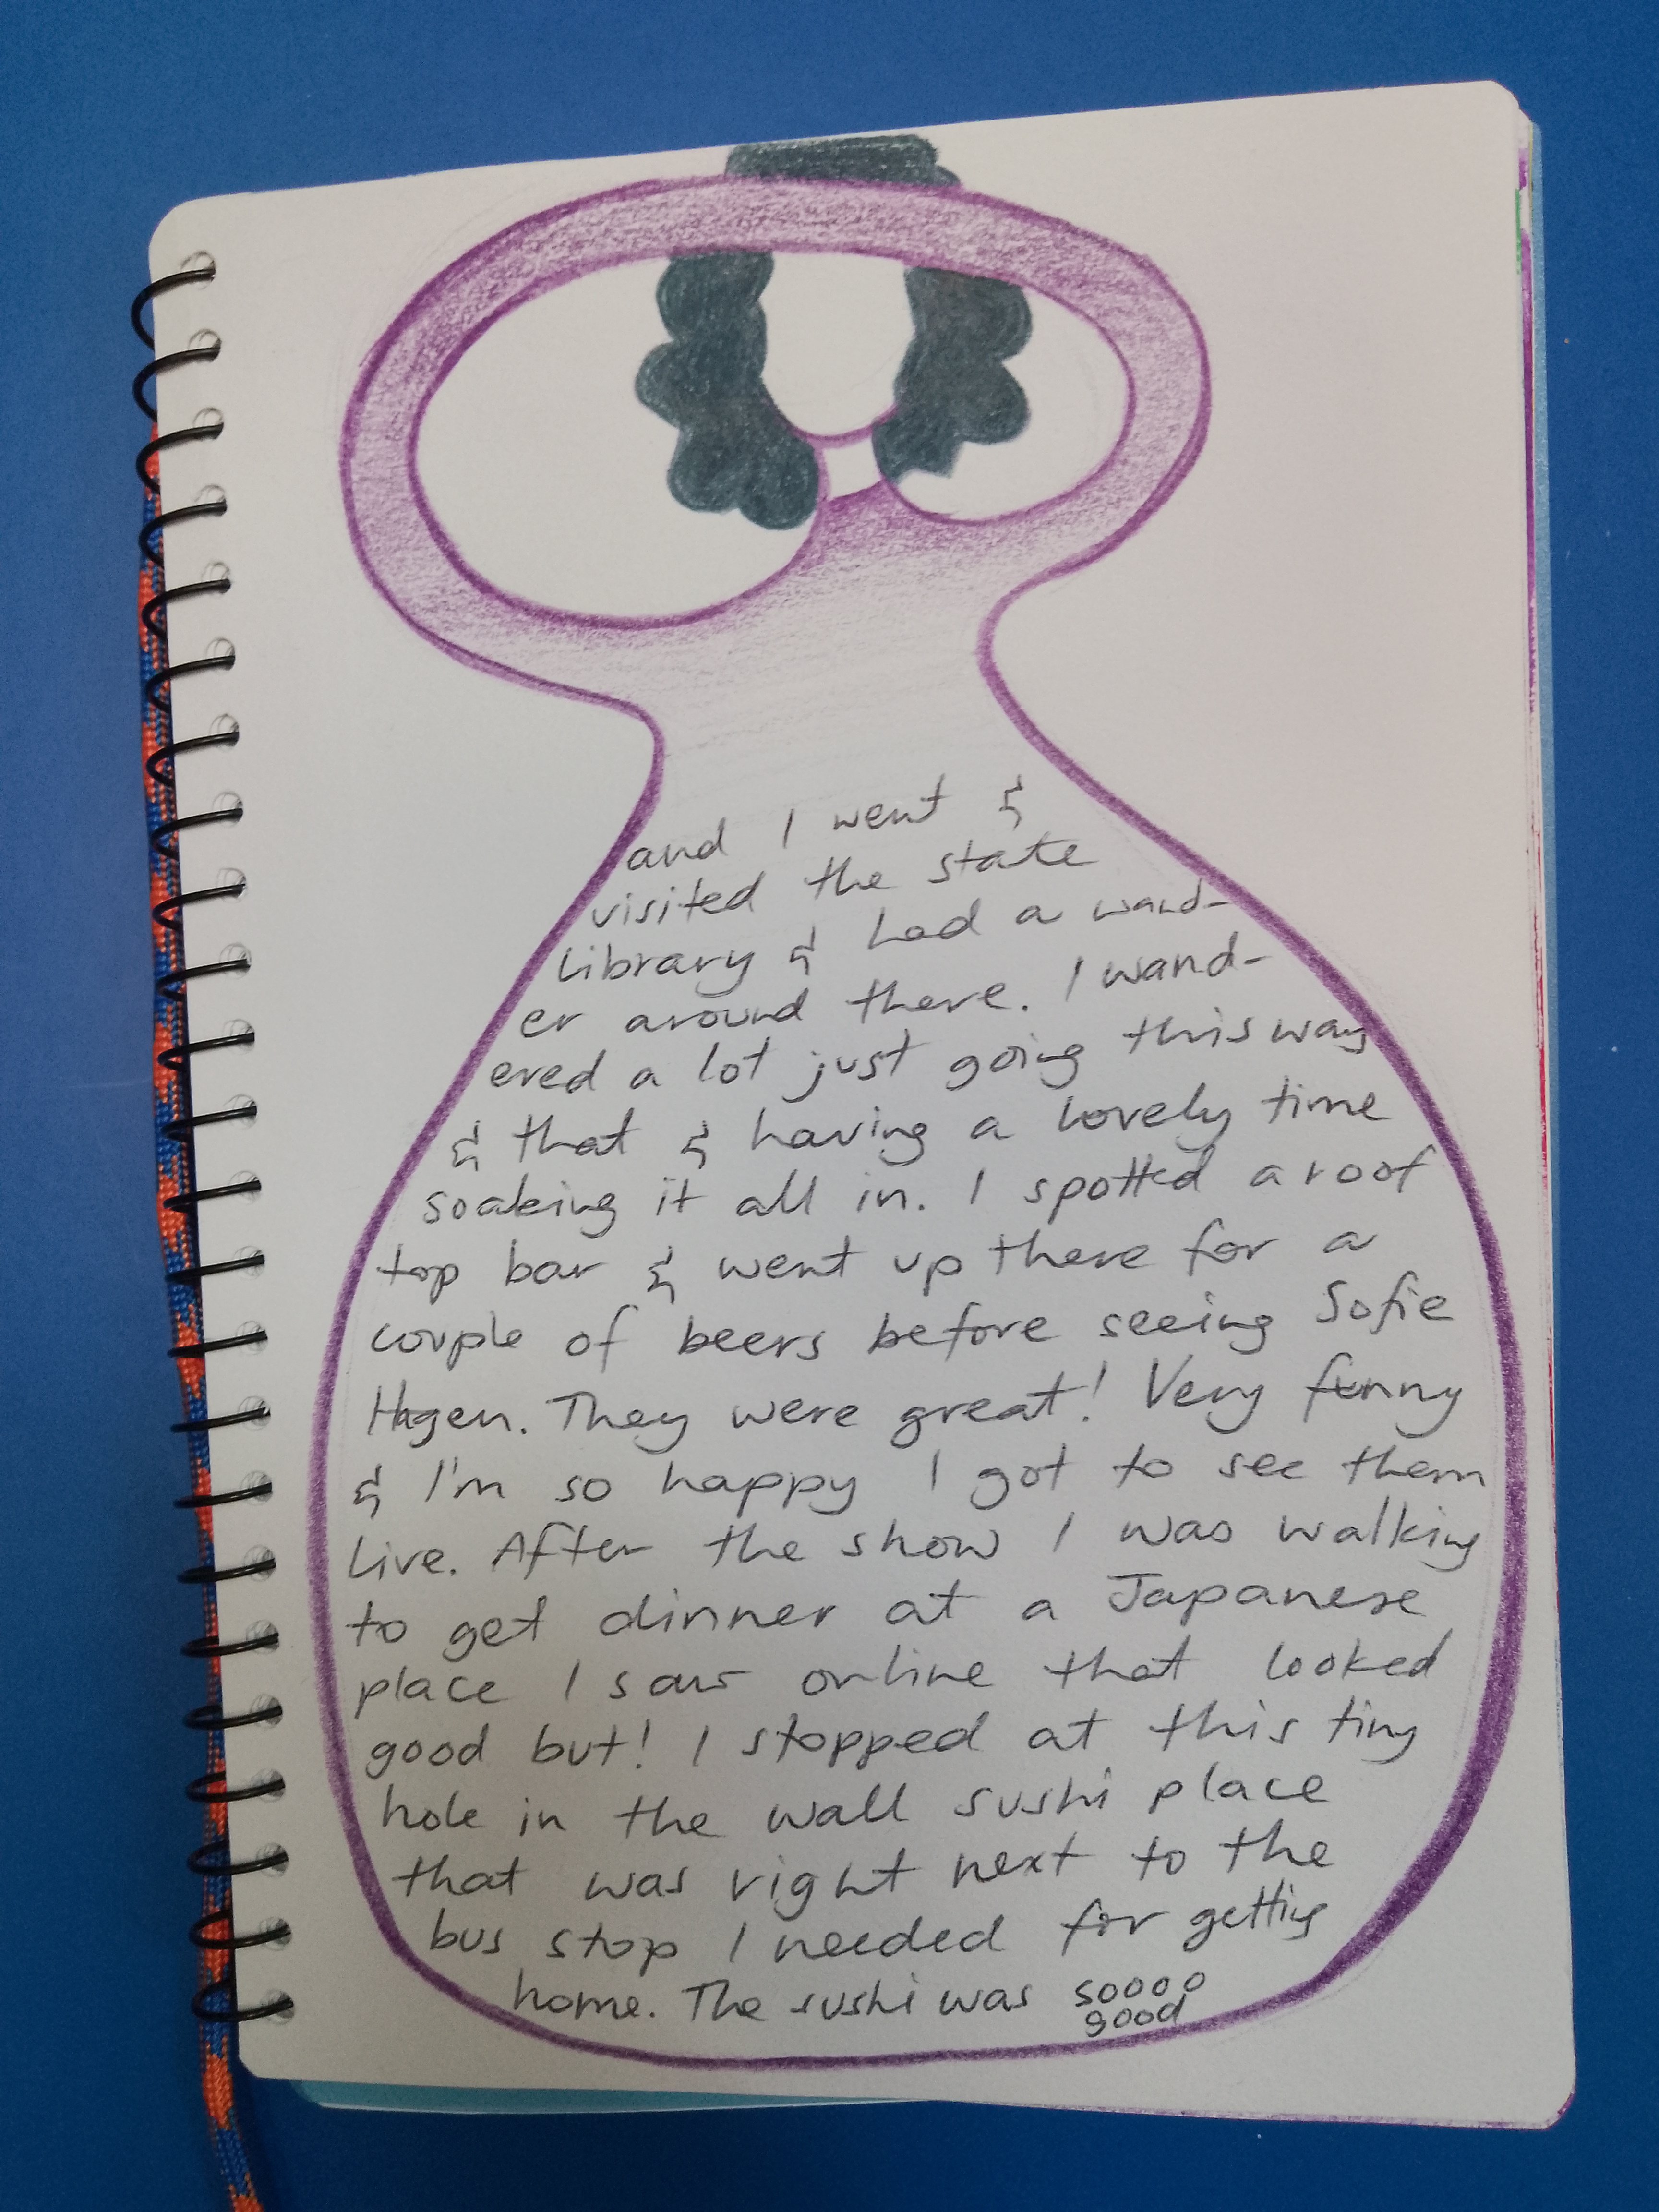 and I went &
visited the state
library & had a wand-
er around there. I wand-
ered a lot just going this way
& that & having a lovely time
soaking it all in. I spotted a roof
top bar & went up there for a
couple of beers before seeing Sofie
Hagen. They were great! Very funny
& I'm so happy I got to see them
live. After the show I was walking
to get dinner at a Japanese
place I saw online that looked
good but! I stopped at this tiny
hole in the wall sushi place
that was right next to the
bus stop I needed for getting
home. The sushi was soooo
good